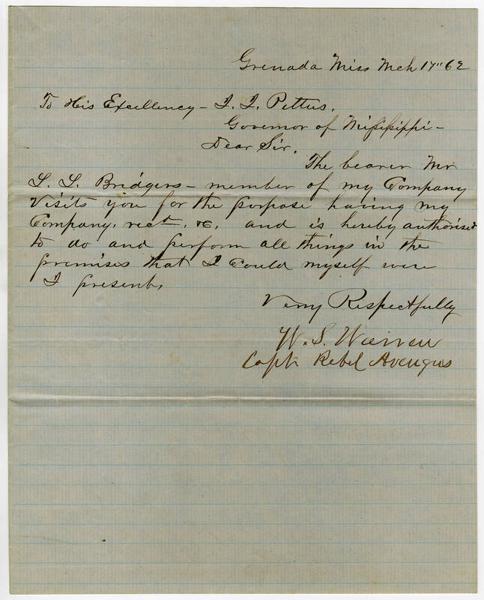 Grenada Miss Mch 17" 62
To His Excellency - J. J. Pettus,
Governor of Missisippi -
Dear Sir,
The bearer Mr
L. L. Bridgers - member of my Company
visits you for the purpose having my
Company, rect, &c, and is hereby authorised
to do and perform all things in the
premises that I could myself were
I present,
Very Respectfully
W. S. Warren
Capt. Rebel Avengers